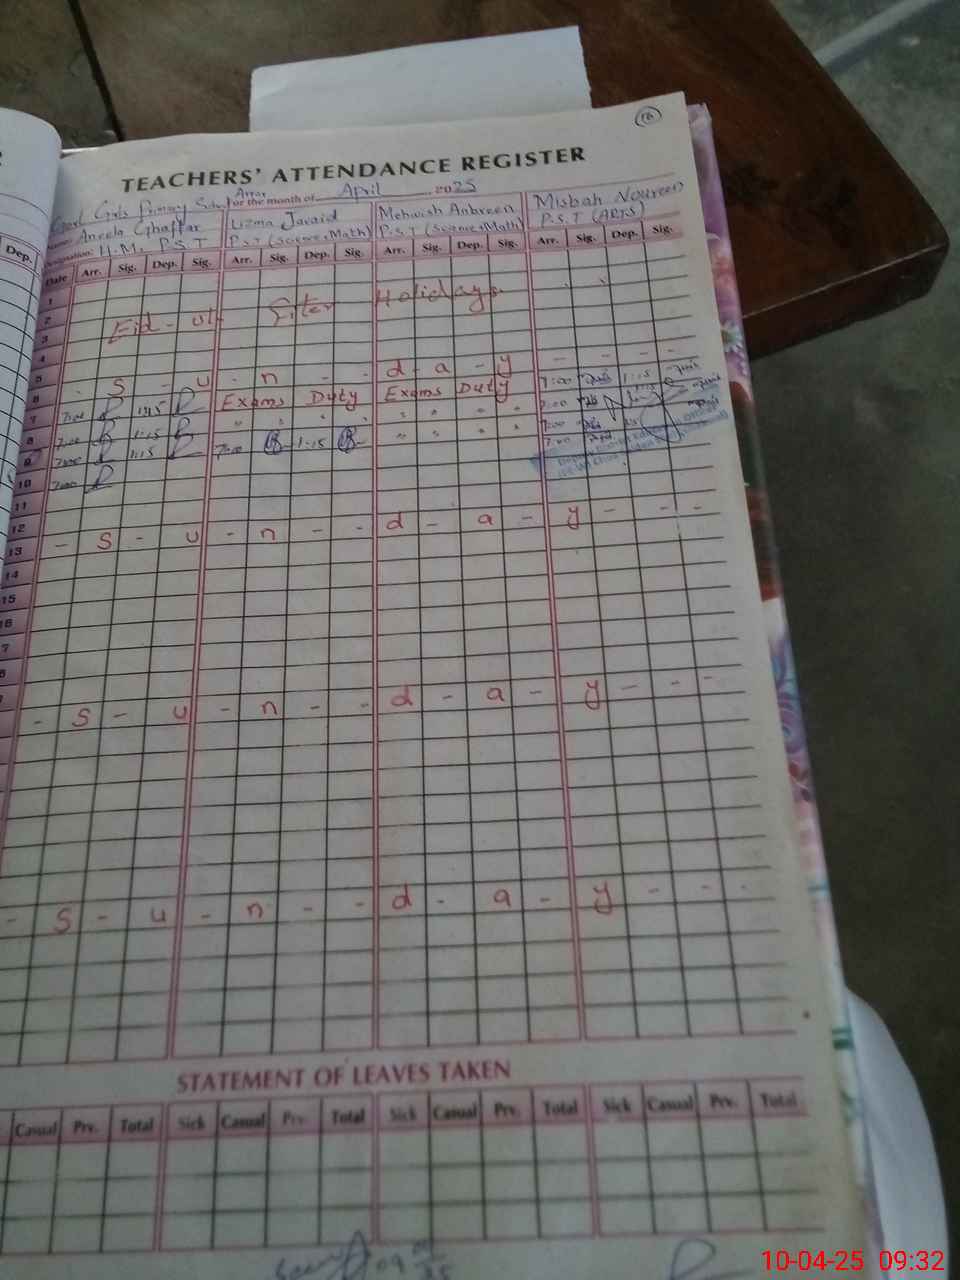 18
TEACHERS' ATTENDANCE REGISTER
Govt Girls Primary School Arrar for the month of April 2025
Name: Aneela Ghaffar Lizma Javaid Mehwish Ambreen Misbah Noureen
Designation: H.M, P.S.T P.S.T (Science, Math) P.S.T (Science, Math) P.S.T (ARTS)
Dep. Date Arr. Sig. Dep. Sig. Arr. Sig. Dep. Sig. Arr. Sig. Dep. Sig. Arr. Sig. Dep. Sig.
1
2 Eid-ul- Fiter Holidays
3
4
5
6 - S - u - n - - d - a - y - - - -
7 7:00 1:15 Exams Duty Exams Duty 7:00 1:15
8 7:00 1:15 " " " " " " " " 7:00 1:15
9 7:00 1:15 7:00 1:15 " " " " 7:00
10 7:00 7:00
11
12
13 - S - u - n - - d - a - y - - -
14
15
16
7
- S - u - n - - d - a - y - - -
- S - u - n - - d - a - y - - -
STATEMENT OF LEAVES TAKEN
Casual Prv. Total Sick Casual Prv. Total Sick Casual Prv. Total Sick Casual Prv. Total
Seen 09
10-04-25 09:32